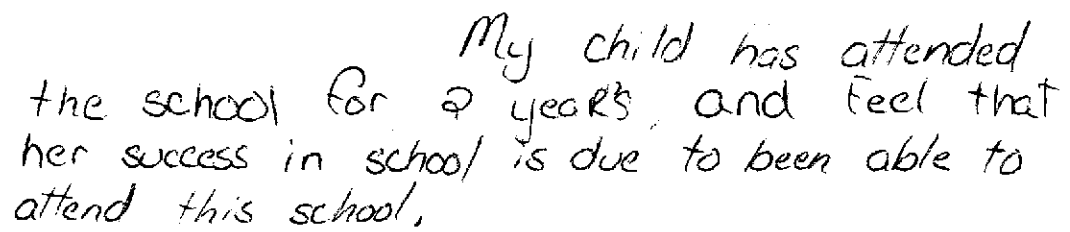 My child has attended
the school for 2 years, and feel that
her success in school is due to been able to
attend this school.